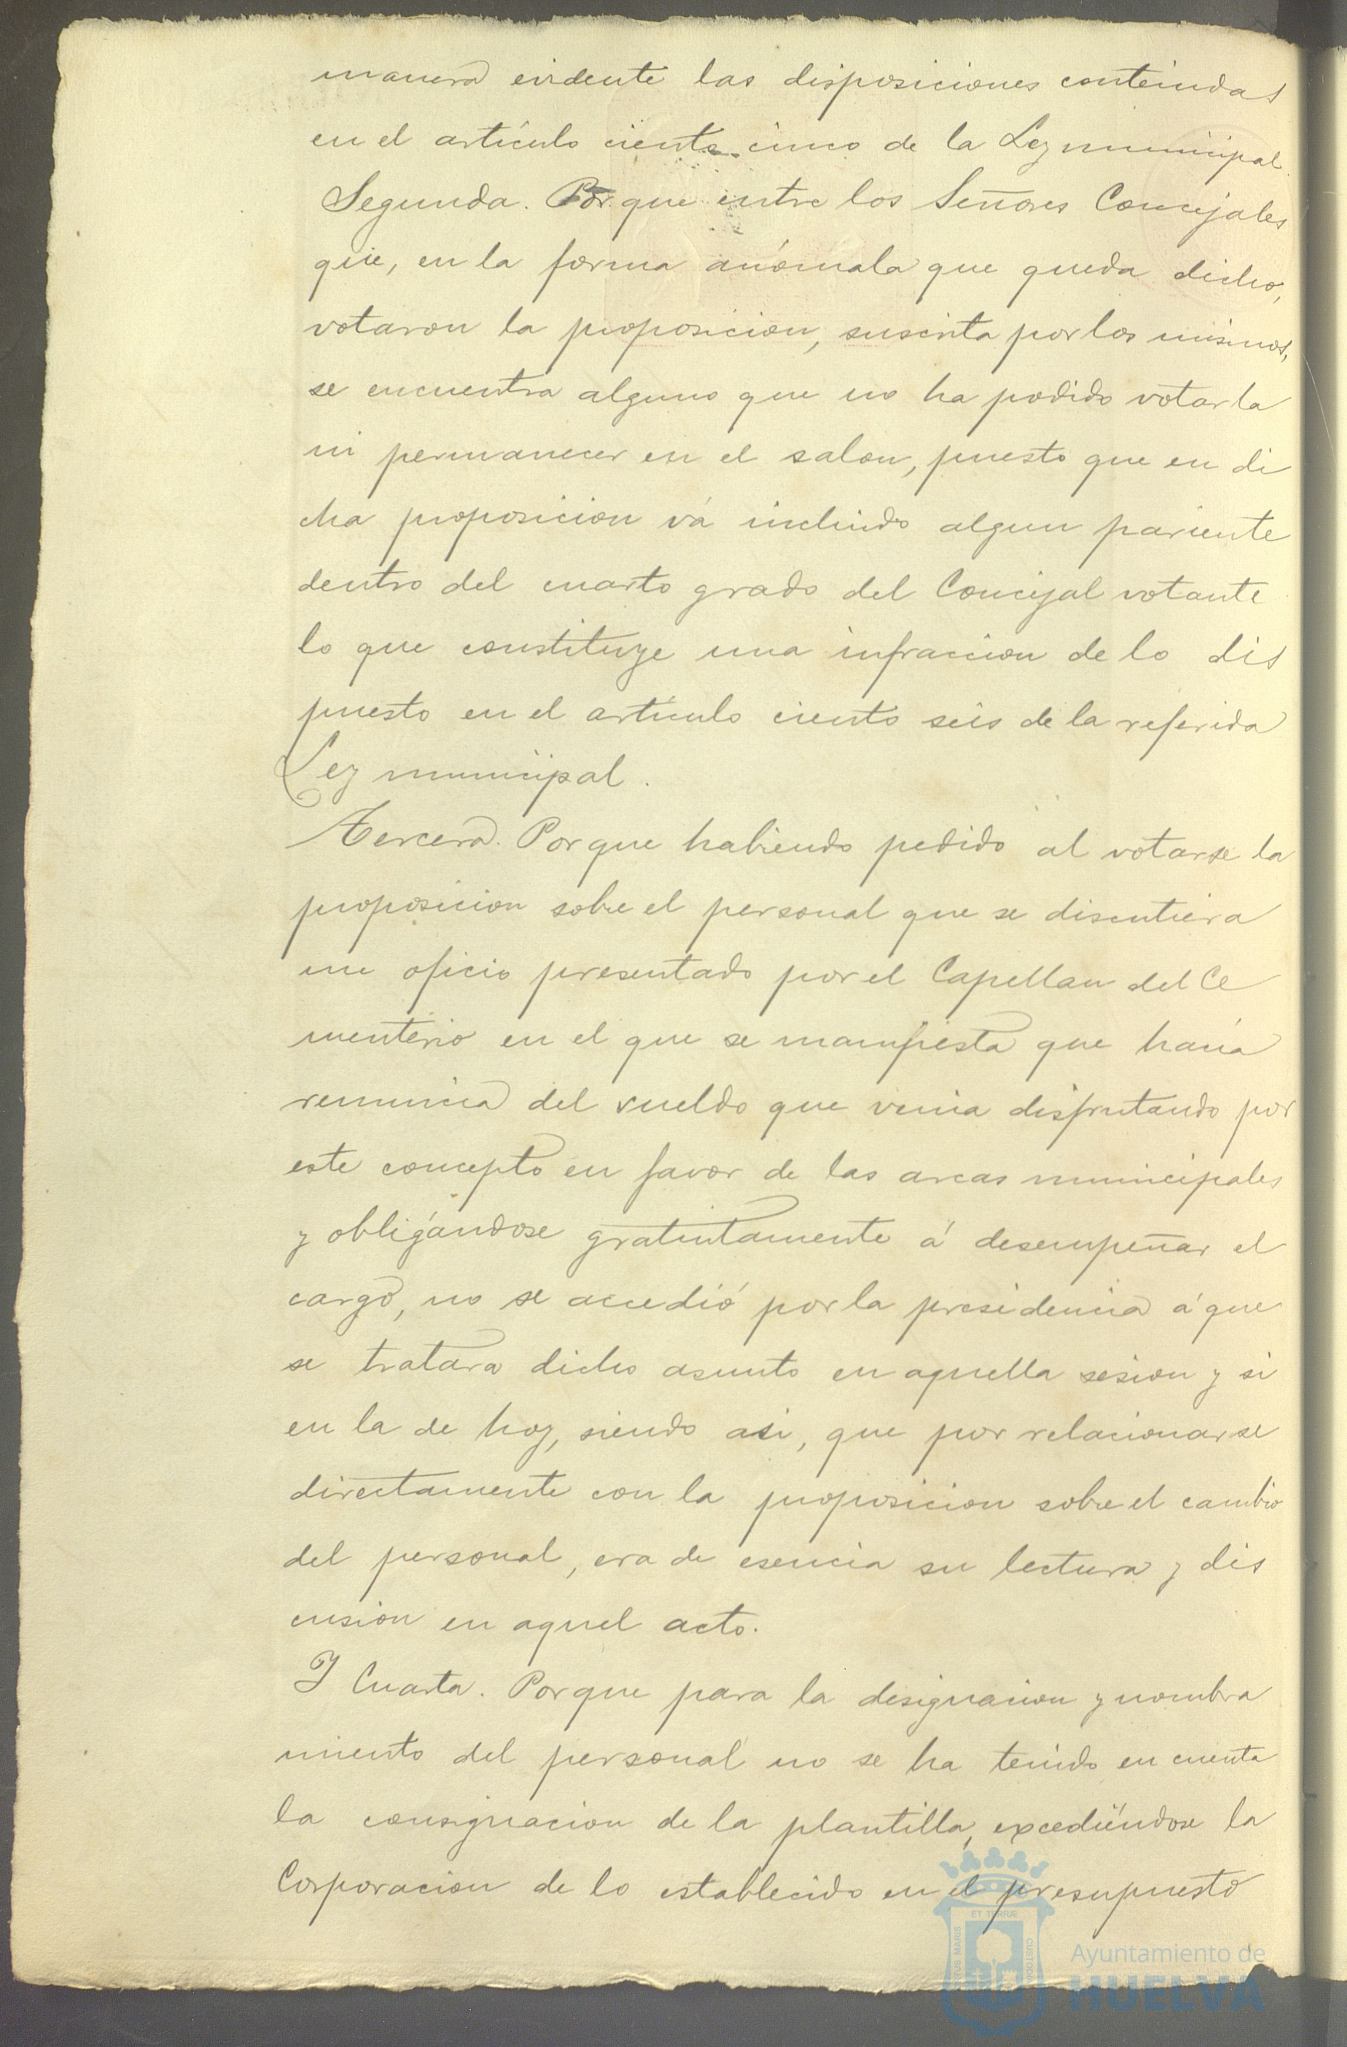 manera evidente las disposiciones contenidas
en el artículo ciento cinco de la Ley municipal.
Segunda. Porque entre los Señores Concejales
que, en la forma anómala que queda dicho,
votaron la proposicion, suscrita por los mismos,
se encuentra alguno que no ha podido votarla
ni permanecer en el salon, puesto que en di
cha proposicion vá incluido algun pariente
dentro del cuarto grado del Concejal votante
lo que constituye una infraccion de lo dis
puesto en el artículo ciento seis de la referida
Ley municipal.
Tercera. Porque habiendo pedido al votarse la
proposicion sobre el personal que se discutiera
un oficio presentado por el Capellan del Ce
menterio en el que se manifiesta que hacia
renuncia del sueldo que venia disfrutando por
este concepto en favor de las arcas municipales
y obligándose gratuitamente á desempeñar el
cargo, no se accedió por la presidencia á que
se tratara dicho asunto en aquella sesion y si
en la de hoy, siendo asi, que por relacionarse
directamente con la proposicion sobre el cambio
del personal, era de esencia su lectura y dis
cusion en aquel acto.
Y Cuarta. Porque para la designacion y nombra
miento del personal no se ha tenido en cuenta
la consignacion de la plantilla, excediéndose la
Corporacion de lo establecido en el presupuesto
PORTUS MARIS
ET TERRÆ
CUSTODIA
Ayuntamiento de
HUELVA